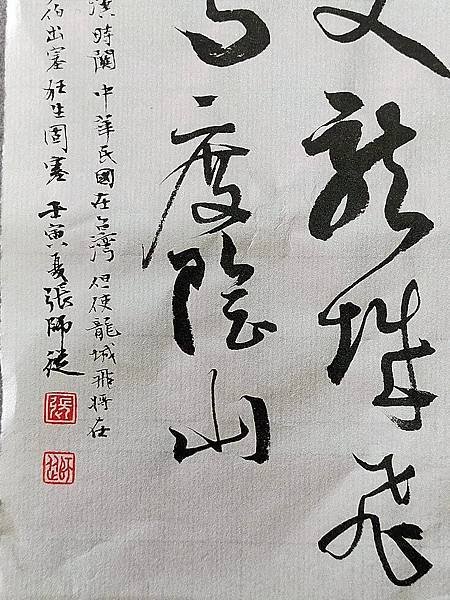 龍城飛
馬度陰山
漢時關 中華民國在台灣 但使龍城飛將在
出塞 狂生固塞 壬寅夏 張師從
張